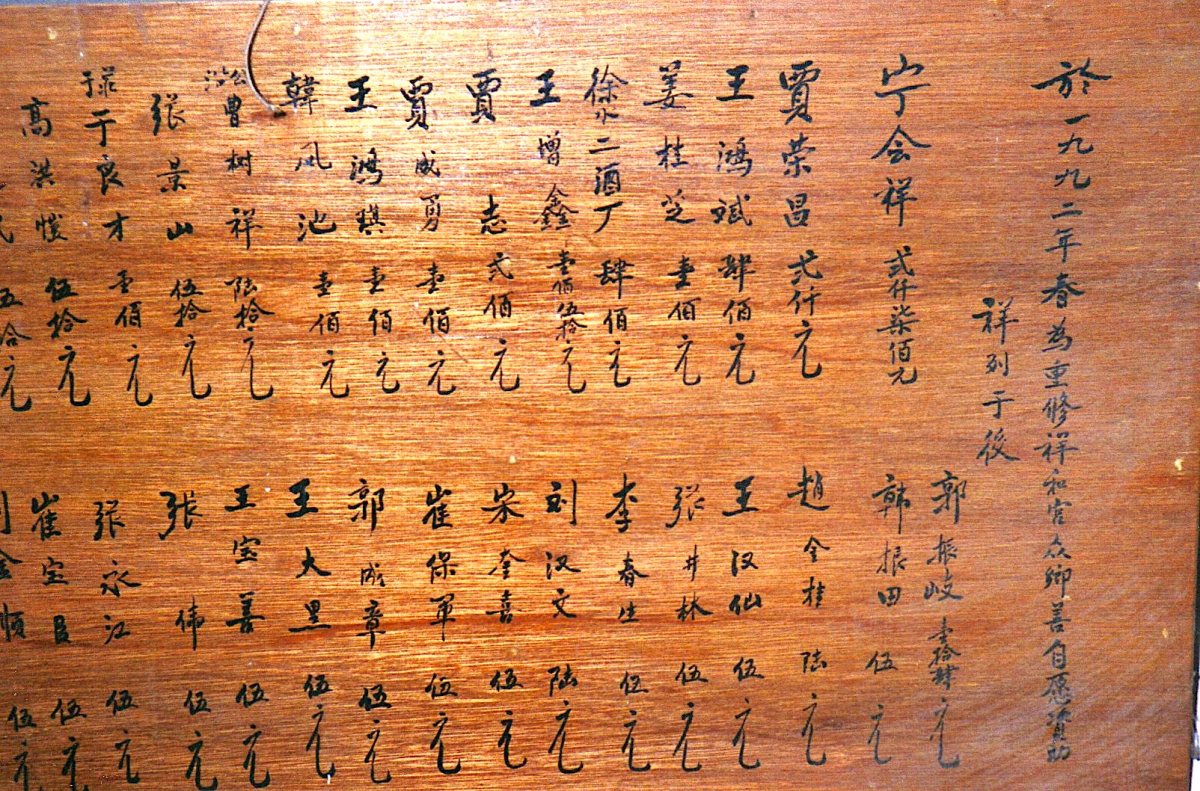 於一九九二年春為重修祥和宫众鄉善自愿资助
祥列于後
宁会祥 弍仟柒佰元
賈荣昌 弍仟元
王鴻斌 肆佰元
姜桂芝 壹佰元
徐水二酒厂 肆佰元
王增鑫 壹佰伍拾元
賈志 弍佰元
賈威勇 壹佰元
王鴻琪 壹佰元
韓风池 壹佰元
曹树祥 陆拾元
張景山 伍拾元
于良才 壹佰元
高洪俊 伍拾元
伍拾元
郭振岐 壹拾肆元
韩振田 伍元
趙全桂 陆元
王汉仙 伍元
张井林 伍元
李春生 伍元
刘汉文 陆元
宋奎喜 伍元
崔保军 伍元
郭成章 伍元
王大黑 伍元
王宝善 伍元
张伟 伍元
張永江 伍元
崔宝昌 伍元
刘金順 伍元